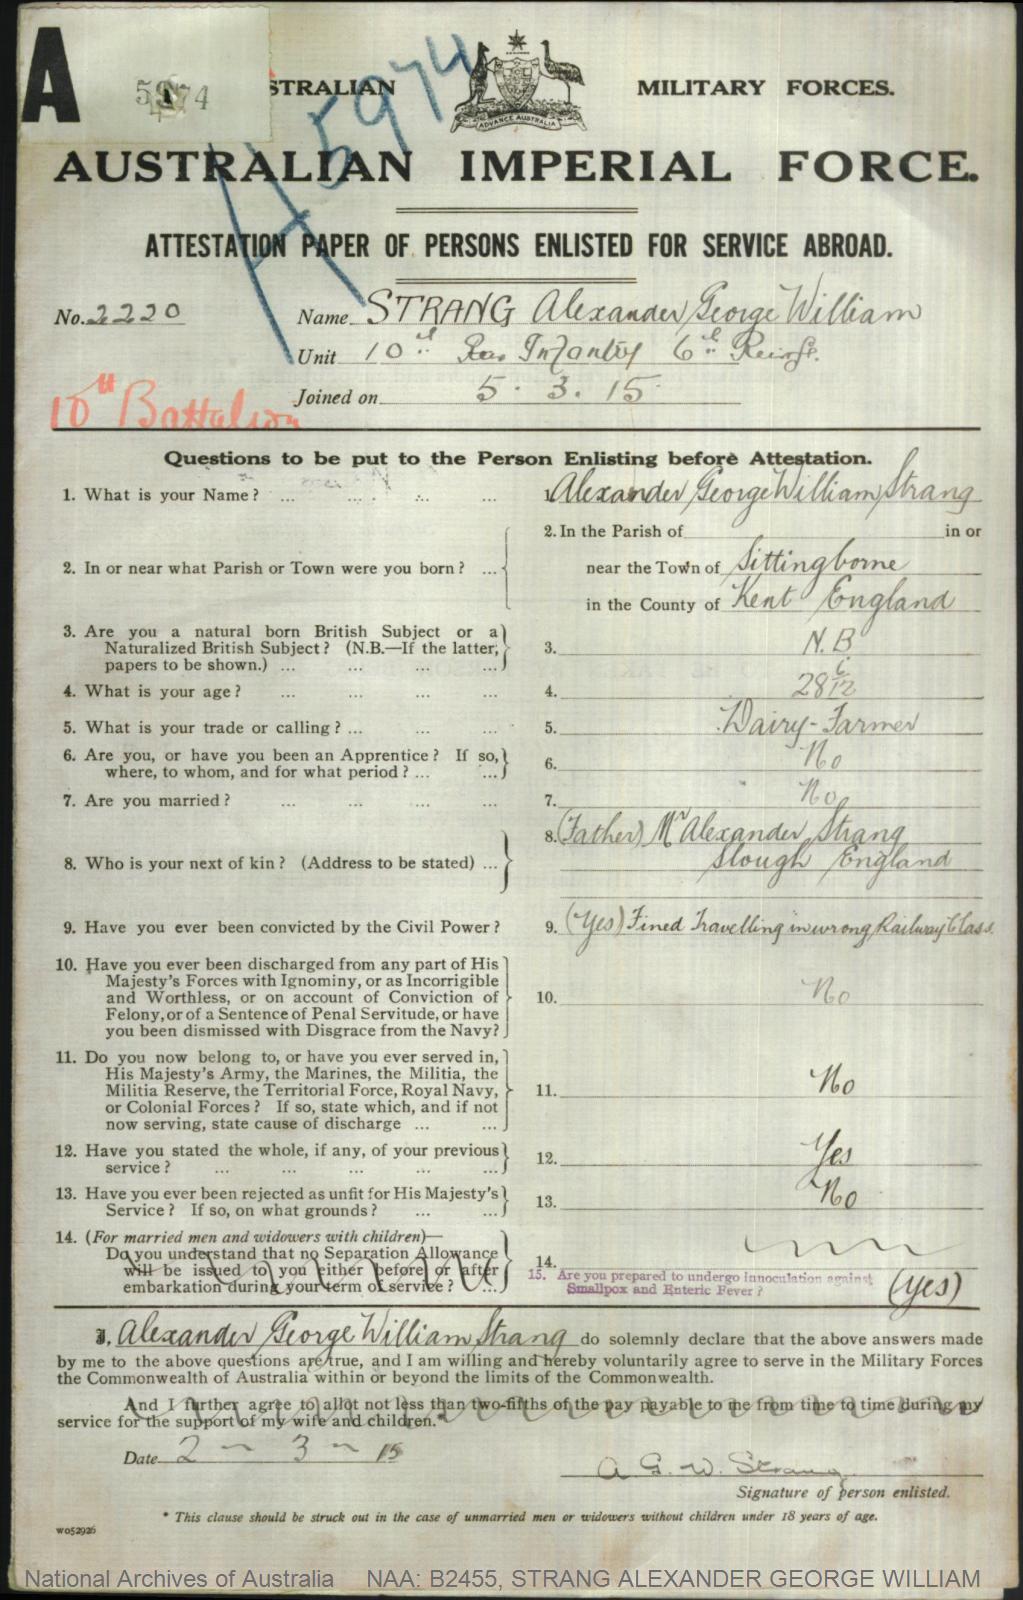 A
5974
AUSTRALIAN MILITARY FORCES.
A 5974
ADVANCE AUSTRALIA
AUSTRALIAN IMPERIAL FORCE.
ATTESTATION PAPER OF PERSONS ENLISTED FOR SERVICE ABROAD.
No. 2220 Name STRANG Alexander George William
Unit 10th Infantry 6th Reinf.
Joined on 5. 3. 15
10th Battalion
Questions to be put to the Person Enlisting before Attestation.
1. What is your Name? ... ... ... ... 1. Alexander George William Strang
2. In or near what Parish or Town were you born? ... 2. In the Parish of in or
near the Town of Sittingborne
in the County of Kent England
3. Are you a natural born British Subject or a
Naturalized British Subject? (N.B.—If the latter,
papers to be shown.) ... ... ... ... 3. N.B
4. What is your age? ... ... ... ... 4. 28 6/12
5. What is your trade or calling? ... ... ... 5. Dairy-Farmer
6. Are you, or have you been an Apprentice? If so,
where, to whom, and for what period? ... ... 6. No
7. Are you married? ... ... ... ... 7. No
8. Who is your next of kin? (Address to be stated) ... 8. (Father) Mr Alexander Strang
Slough England
9. Have you ever been convicted by the Civil Power? 9. (Yes) Fined Travelling in wrong Railway Class.
10. Have you ever been discharged from any part of His
Majesty's Forces with Ignominy, or as Incorrigible
and Worthless, or on account of Conviction of
Felony, or of a Sentence of Penal Servitude, or have
you been dismissed with Disgrace from the Navy? 10. No
11. Do you now belong to, or have you ever served in,
His Majesty's Army, the Marines, the Militia, the
Militia Reserve, the Territorial Force, Royal Navy,
or Colonial Forces? If so, state which, and if not
now serving, state cause of discharge ... ... 11. No
12. Have you stated the whole, if any, of your previous
service? ... ... ... ... ... 12. Yes
13. Have you ever been rejected as unfit for His Majesty's
Service? If so, on what grounds? ... ... 13. No
14. (For married men and widowers with children)—
Do you understand that no Separation Allowance
will be issued to you either before or after
embarkation during your term of service? ... 14.
15. Are you prepared to undergo innoculation against
Smallpox and Enteric Fever? (Yes)
I, Alexander George William Strang do solemnly declare that the above answers made
by me to the above questions are true, and I am willing and hereby voluntarily agree to serve in the Military Forces
the Commonwealth of Australia within or beyond the limits of the Commonwealth.
And I further agree to allot not less than two-fifths of the pay payable to me from time to time during my
service for the support of my wife and children.*
Date 2 - 3 - 15
A. G. W. Strang
Signature of person enlisted.
* This clause should be struck out in the case of unmarried men or widowers without children under 18 years of age.
W052926
National Archives of Australia NAA: B2455, STRANG ALEXANDER GEORGE WILLIAM